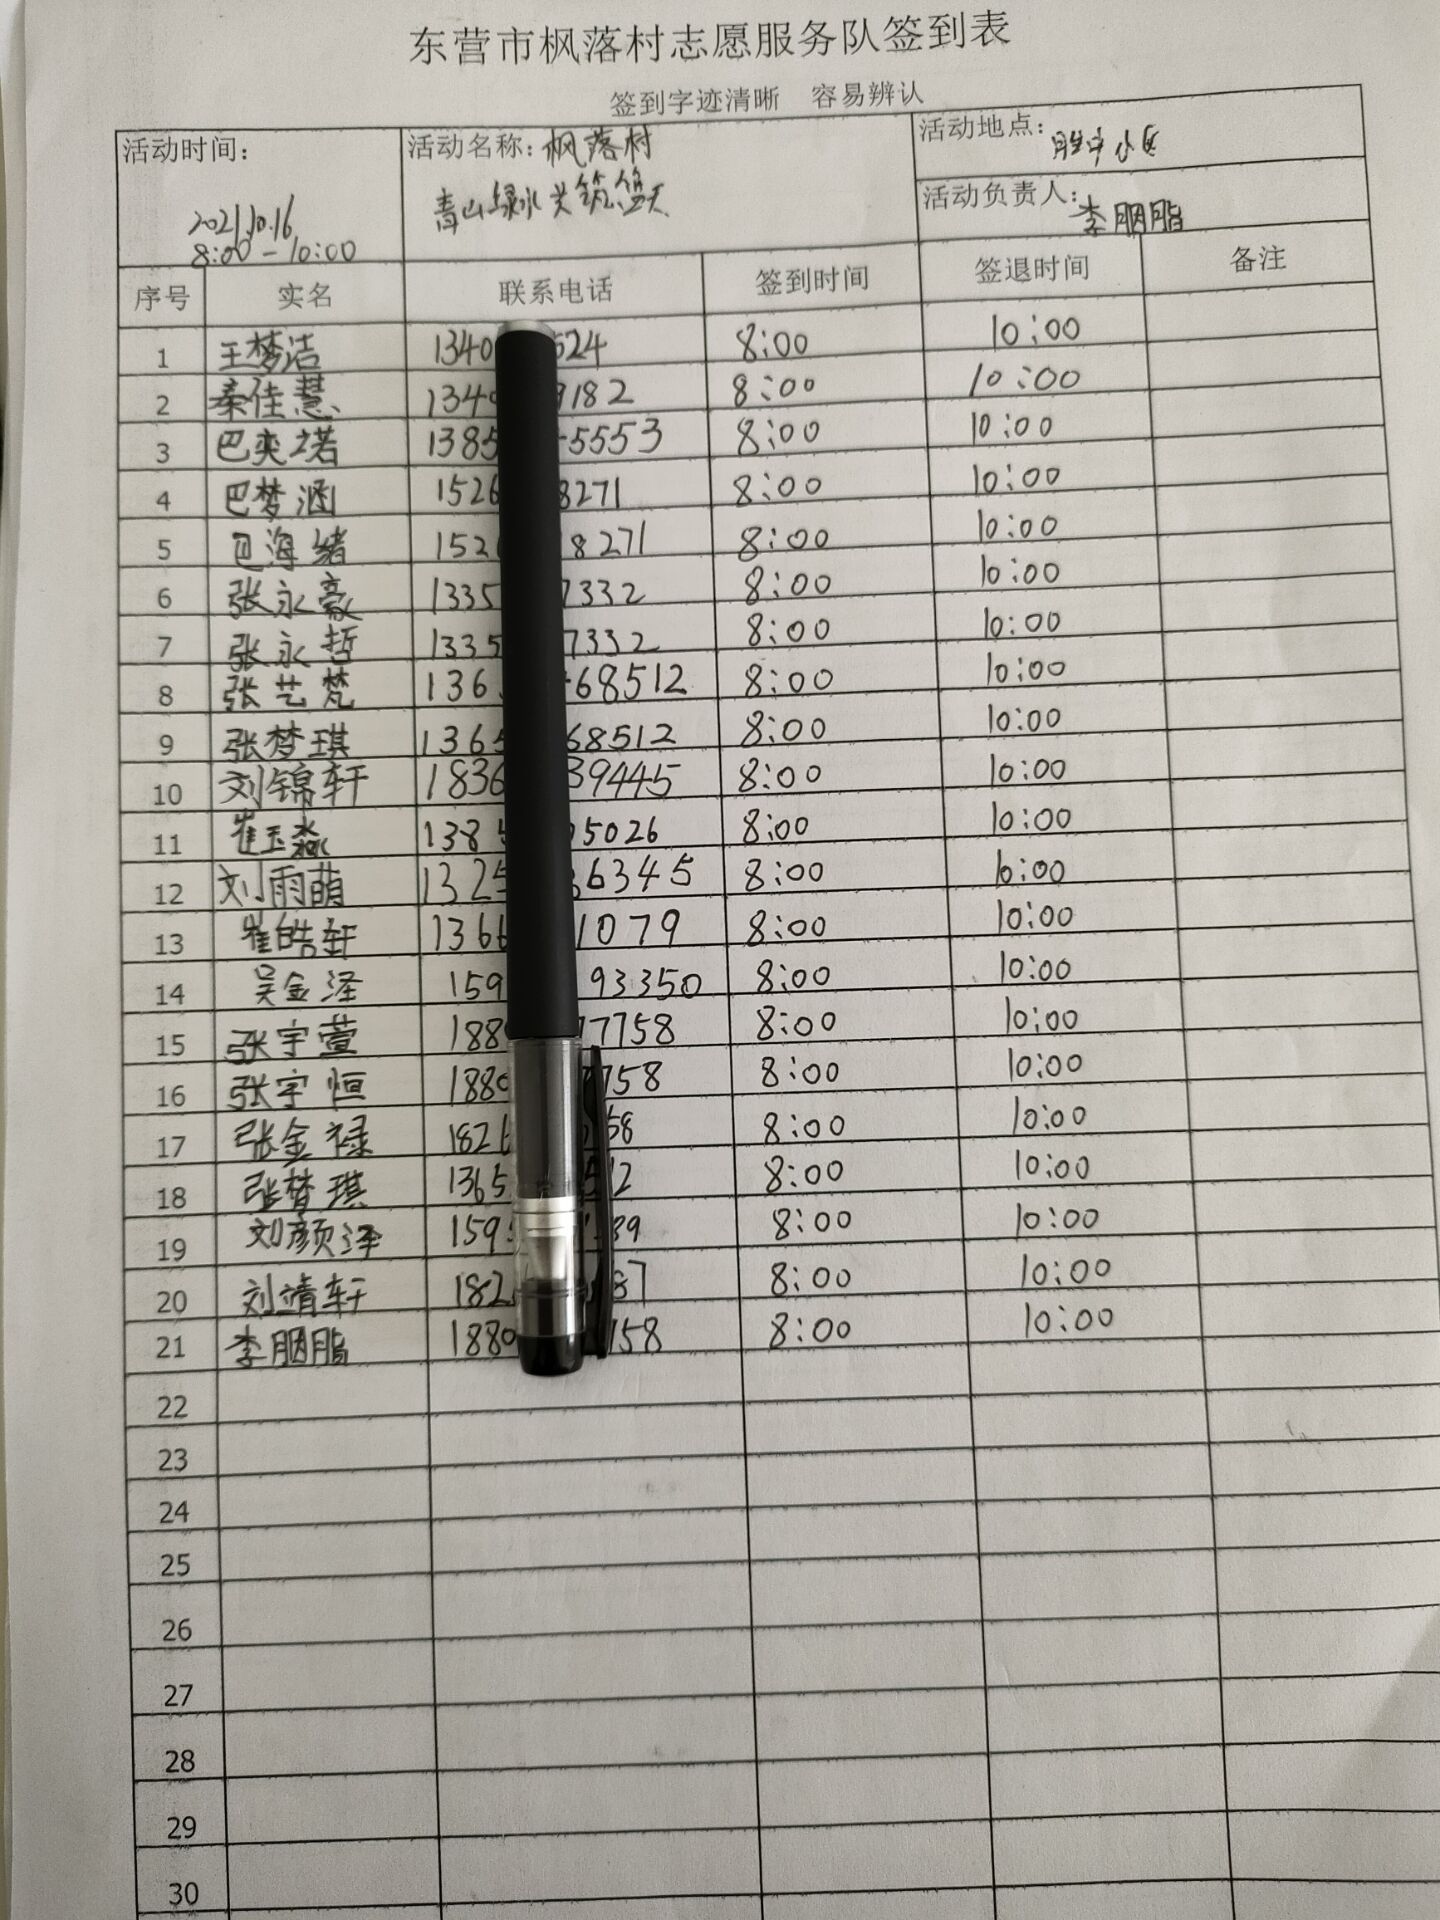 东营市枫落村志愿服务队签到表
签到字迹清晰 容易辨认
活动时间: 2021.10.16 8:00-10:00
活动名称: 枫落村 青山绿水共筑蓝天
活动地点: 胜中小区
活动负责人: 李胭脂
序号 实名 联系电话 签到时间 签退时间 备注
1 王梦洁 1340 524 8:00 10:00
2 秦佳慧 134 9182 8:00 10:00
3 巴奕诺 1385 5553 8:00 10:00
4 巴梦涵 1526 8271 8:00 10:00
5 巴海绪 152 8271 8:00 10:00
6 张永豪 1335 7332 8:00 10:00
7 张永哲 1335 7332 8:00 10:00
8 张艺梵 136 68512 8:00 10:00
9 张梦琪 1365 68512 8:00 10:00
10 刘锦轩 1836 39445 8:00 10:00
11 崔玉淼 1385 5026 8:00 10:00
12 刘雨萌 1325 6345 8:00 10:00
13 崔皓轩 1366 1079 8:00 10:00
14 吴金泽 159 93350 8:00 10:00
15 张宇萱 188 7758 8:00 10:00
16 张宇恒 1880 758 8:00 10:00
17 张金禄 1826 58 8:00 10:00
18 张梦琪 1365 12 8:00 10:00
19 刘颜泽 159 39 8:00 10:00
20 刘靖轩 182 87 8:00 10:00
21 李胭脂 1880 158 8:00 10:00
22
23
24
25
26
27
28
29
30